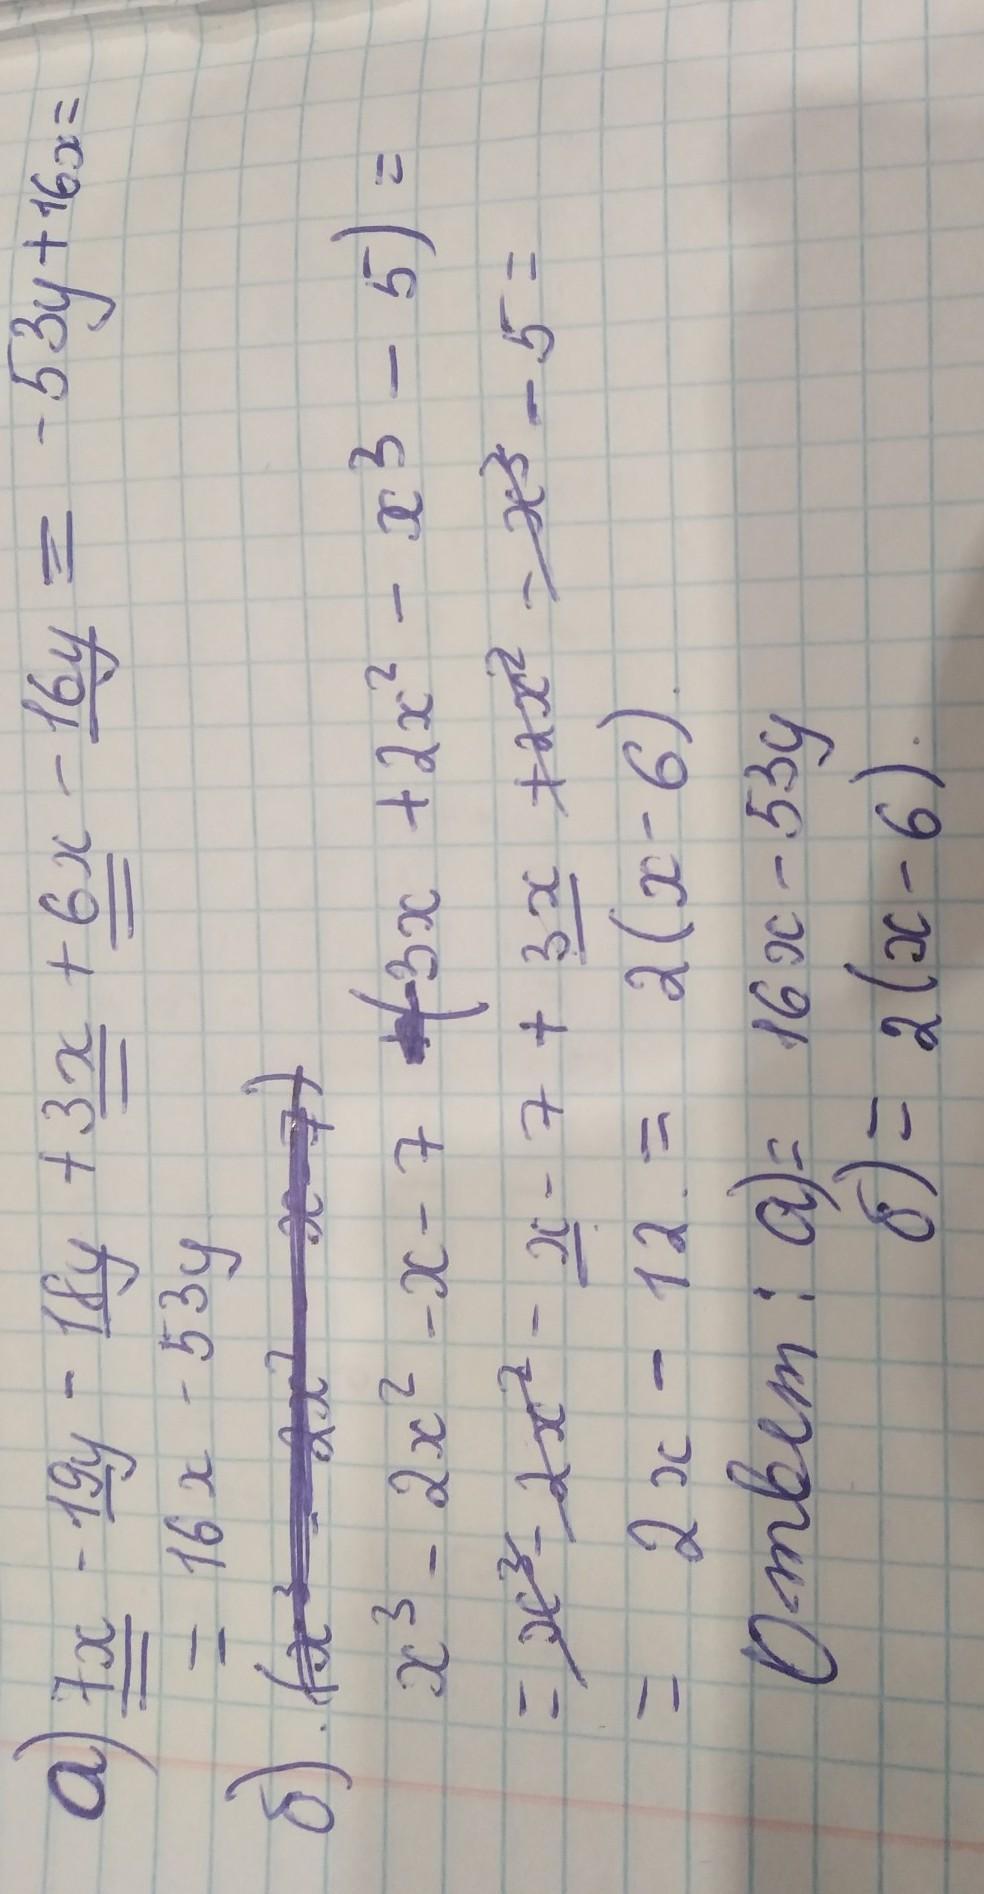 а) 7x - 19y - 18y + 3x + 6x - 16y = - 53y + 16x =
= 16x - 53y
б). (x³ - 2x² x - 7)
x³ - 2x² - x - 7 (3x + 2x² - x³ - 5) =
= x³ - 2x² - x - 7 + 3x + 2x² - x³ - 5 =
= 2x - 12 = 2(x - 6).
Ответ: а) = 16x - 53y
б) = 2(x - 6).